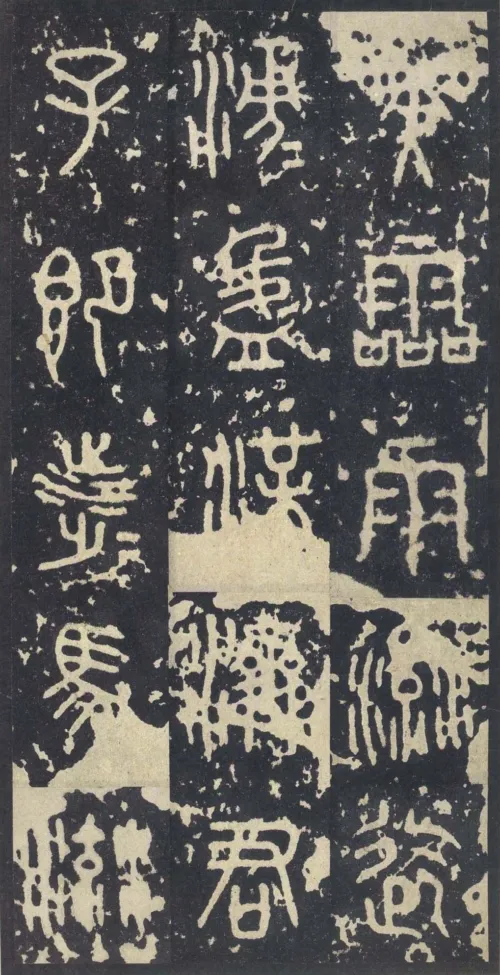 癸霝雨流迄
湧盈渫濟君
子即涉馬流